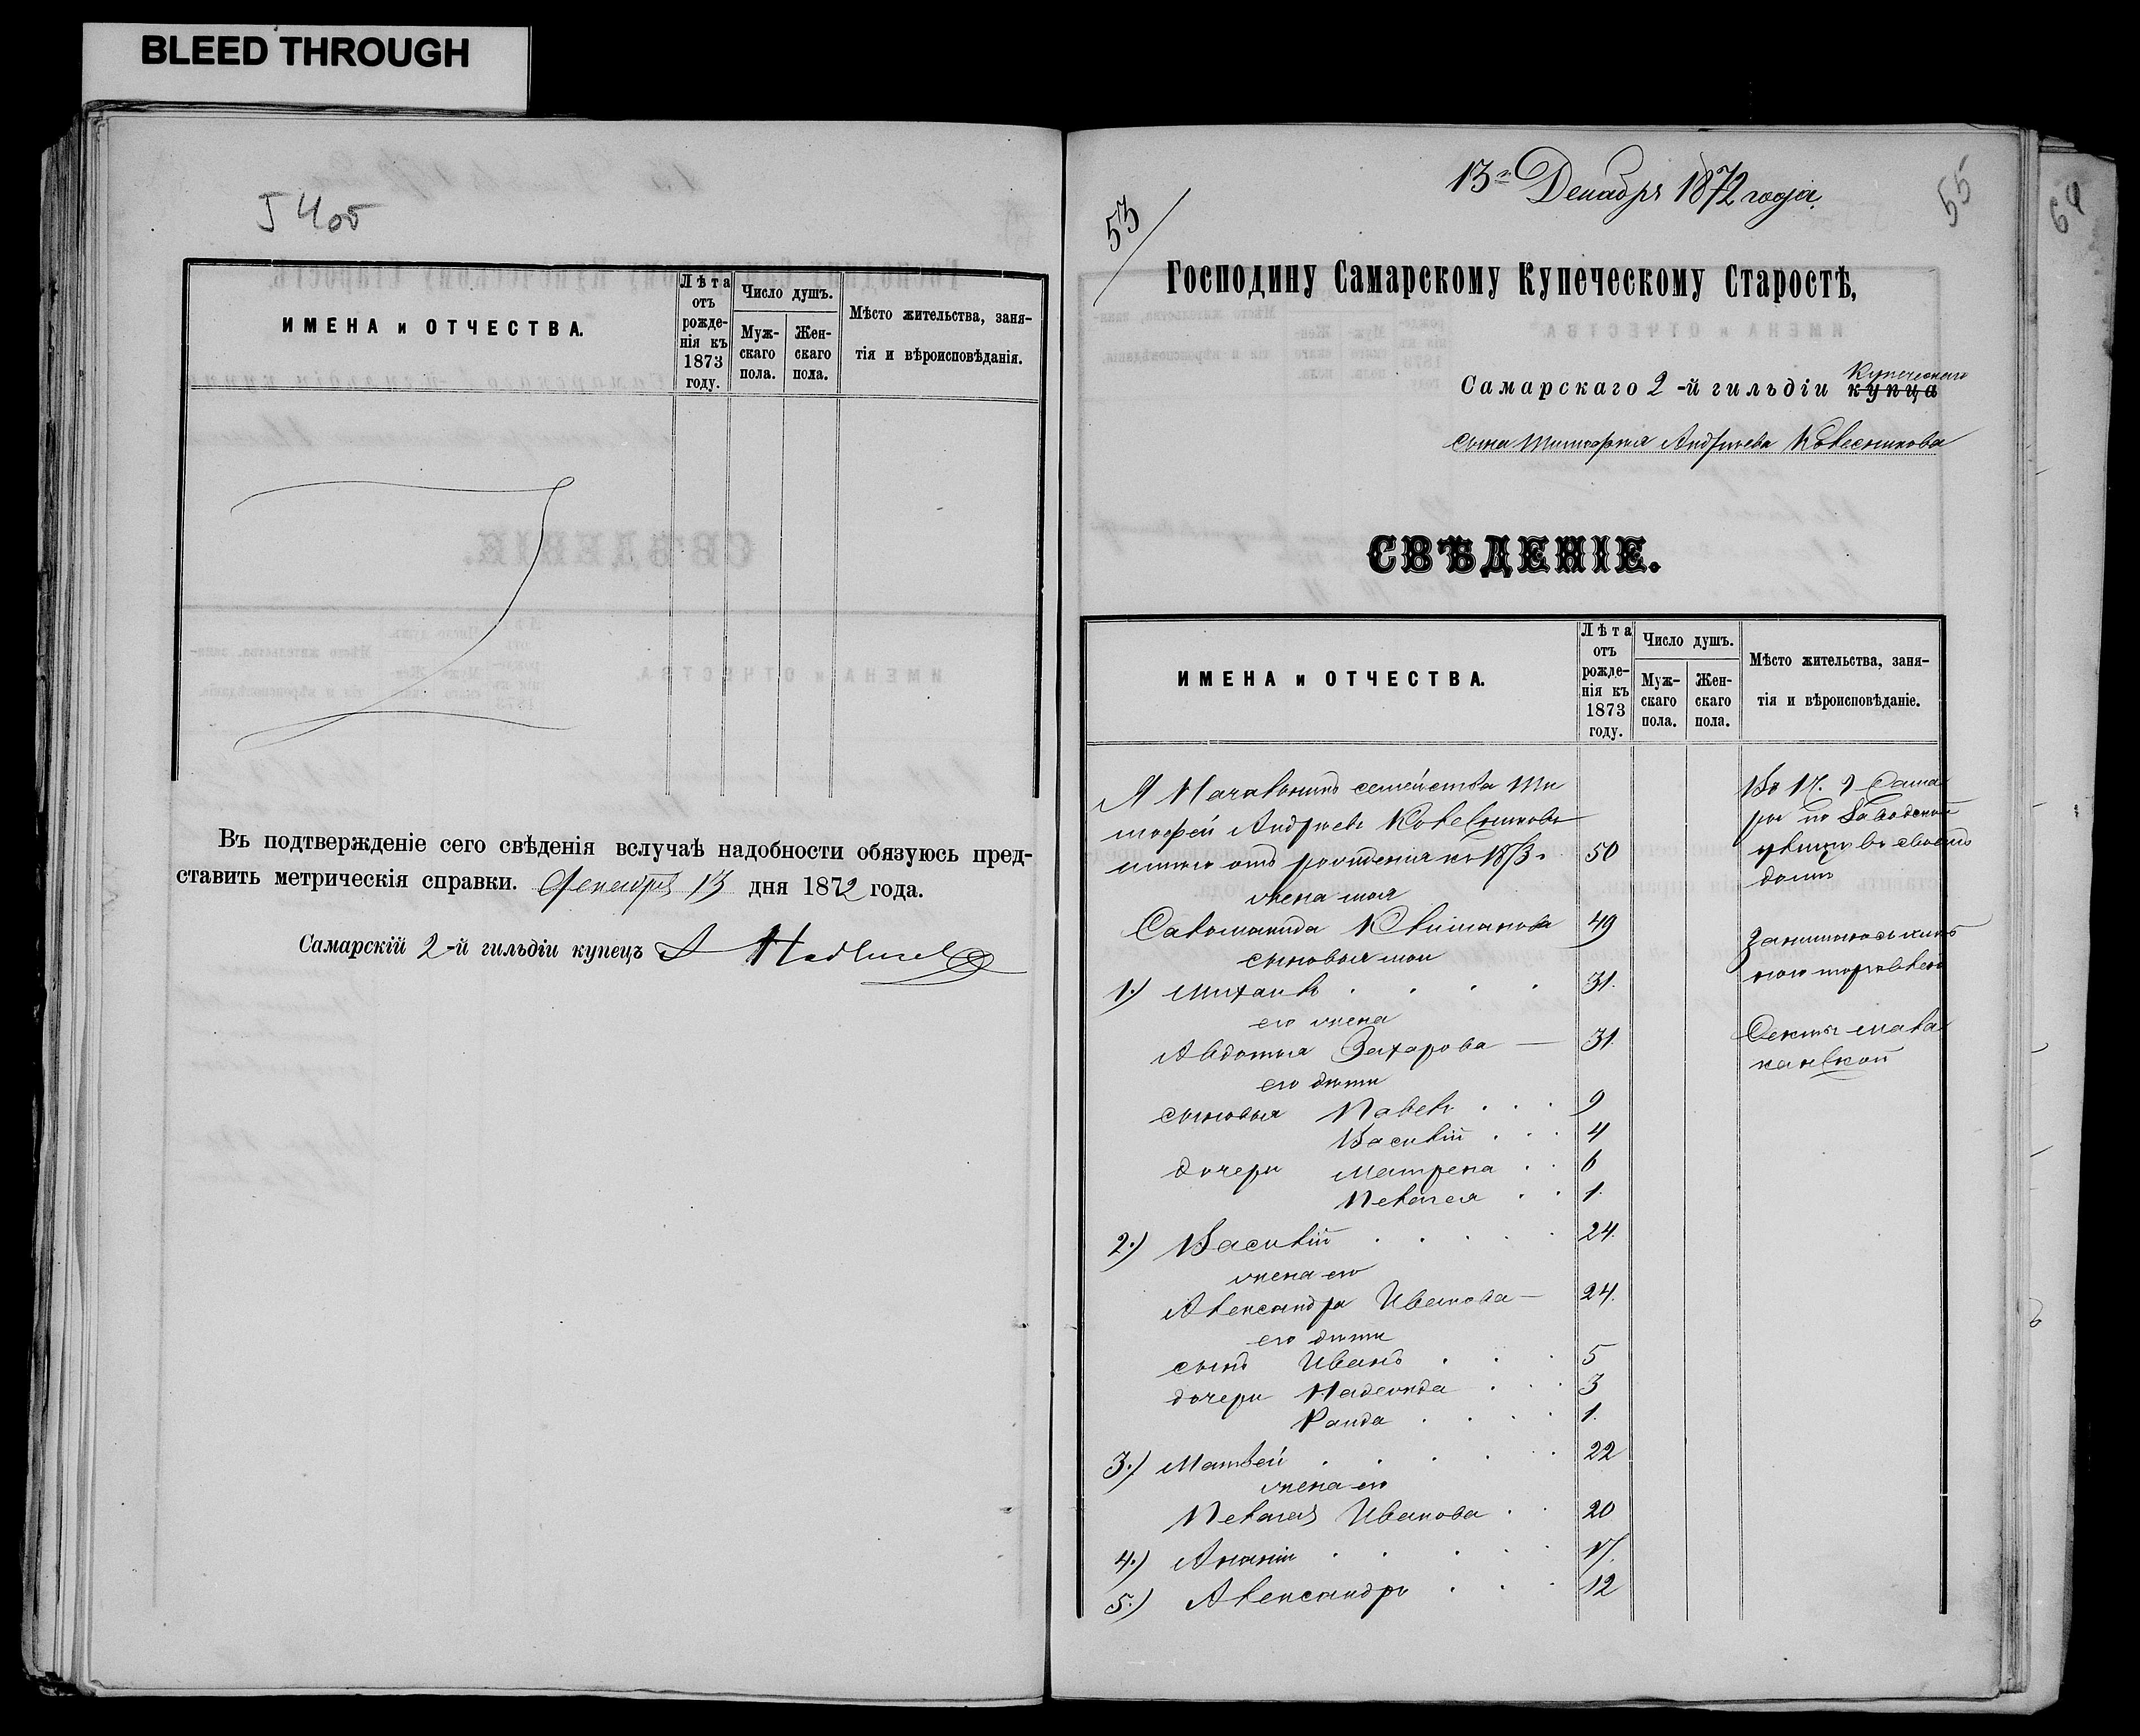 BLEED THROUGH
54об
ИМЕНА и ОТЧЕСТВА.
Лѣта отъ рожденія къ 1873 году.
Число душъ.
Мужскаго пола.
Женскаго пола.
Мѣсто жительства, занятія и вѣроисповѣданія.
Въ подтвержденіе сего свѣденія вслучаѣ надобности обязуюсь пред-
ставить метрическія справки. Декабря 13 дня 1872 года.
Самарскій 2-й гильдіи купецъ
13го Декабря 1872 года.
53
55
64
Господину Самарскому Купеческому Старостѣ,
Купеческаго
Самарскаго 2-й гильдіи купца
сына Тимофея Андреева Колесникова
СВѢДЕНІЕ.
ИМЕНА и ОТЧЕСТВА.
Лѣта отъ рожденія къ 1873 году.
Число душъ.
Мужскаго пола.
Женскаго пола.
Мѣсто жительства, занятія и вѣроисповѣданіе.
Я Начальникъ семейства Ти
мофей Андреевъ Колесниковъ
имѣю отъ рожденія къ 1873 г. 50
жена моя
Саломанида Климанова 49
сыновья мои
1.) Михаилъ 31.
его жена
Авдотья Захарова — 31.
его дѣти
сыновья Павелъ 9
Василій 4
дочери Матрена 6
Пелагея 1.
2.) Василій 24.
жена его
Александра Иванова — 24.
его дѣти
сынъ Иванъ 5
дочери Надежда 3
Раида 1.
3.) Матвей 22
жена его
Пелагея Иванова 20
4.) Ананій 17.
5.) Александръ 12
Въ г. Сама
ре по Заводской
улице въ своемъ
доме
Занимаюсь хлеб
ною торговлею
Секты мала
канской